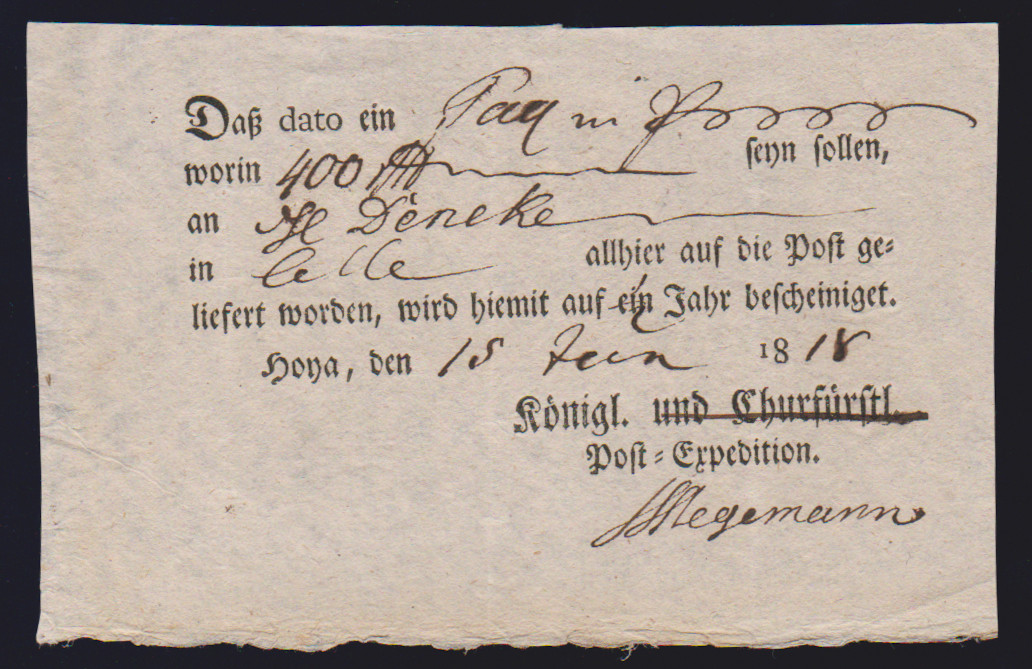 Daß dato ein Paq in
worin 400 seyn sollen,
an Deneke
in Celle allhier auf die Post ge⸗
liefert worden, wird hiemit auf ein Jahr bescheiniget.
Hoya, den 15 Jun 1818
Königl. und Churfürstl.
Post⸗Expedition.